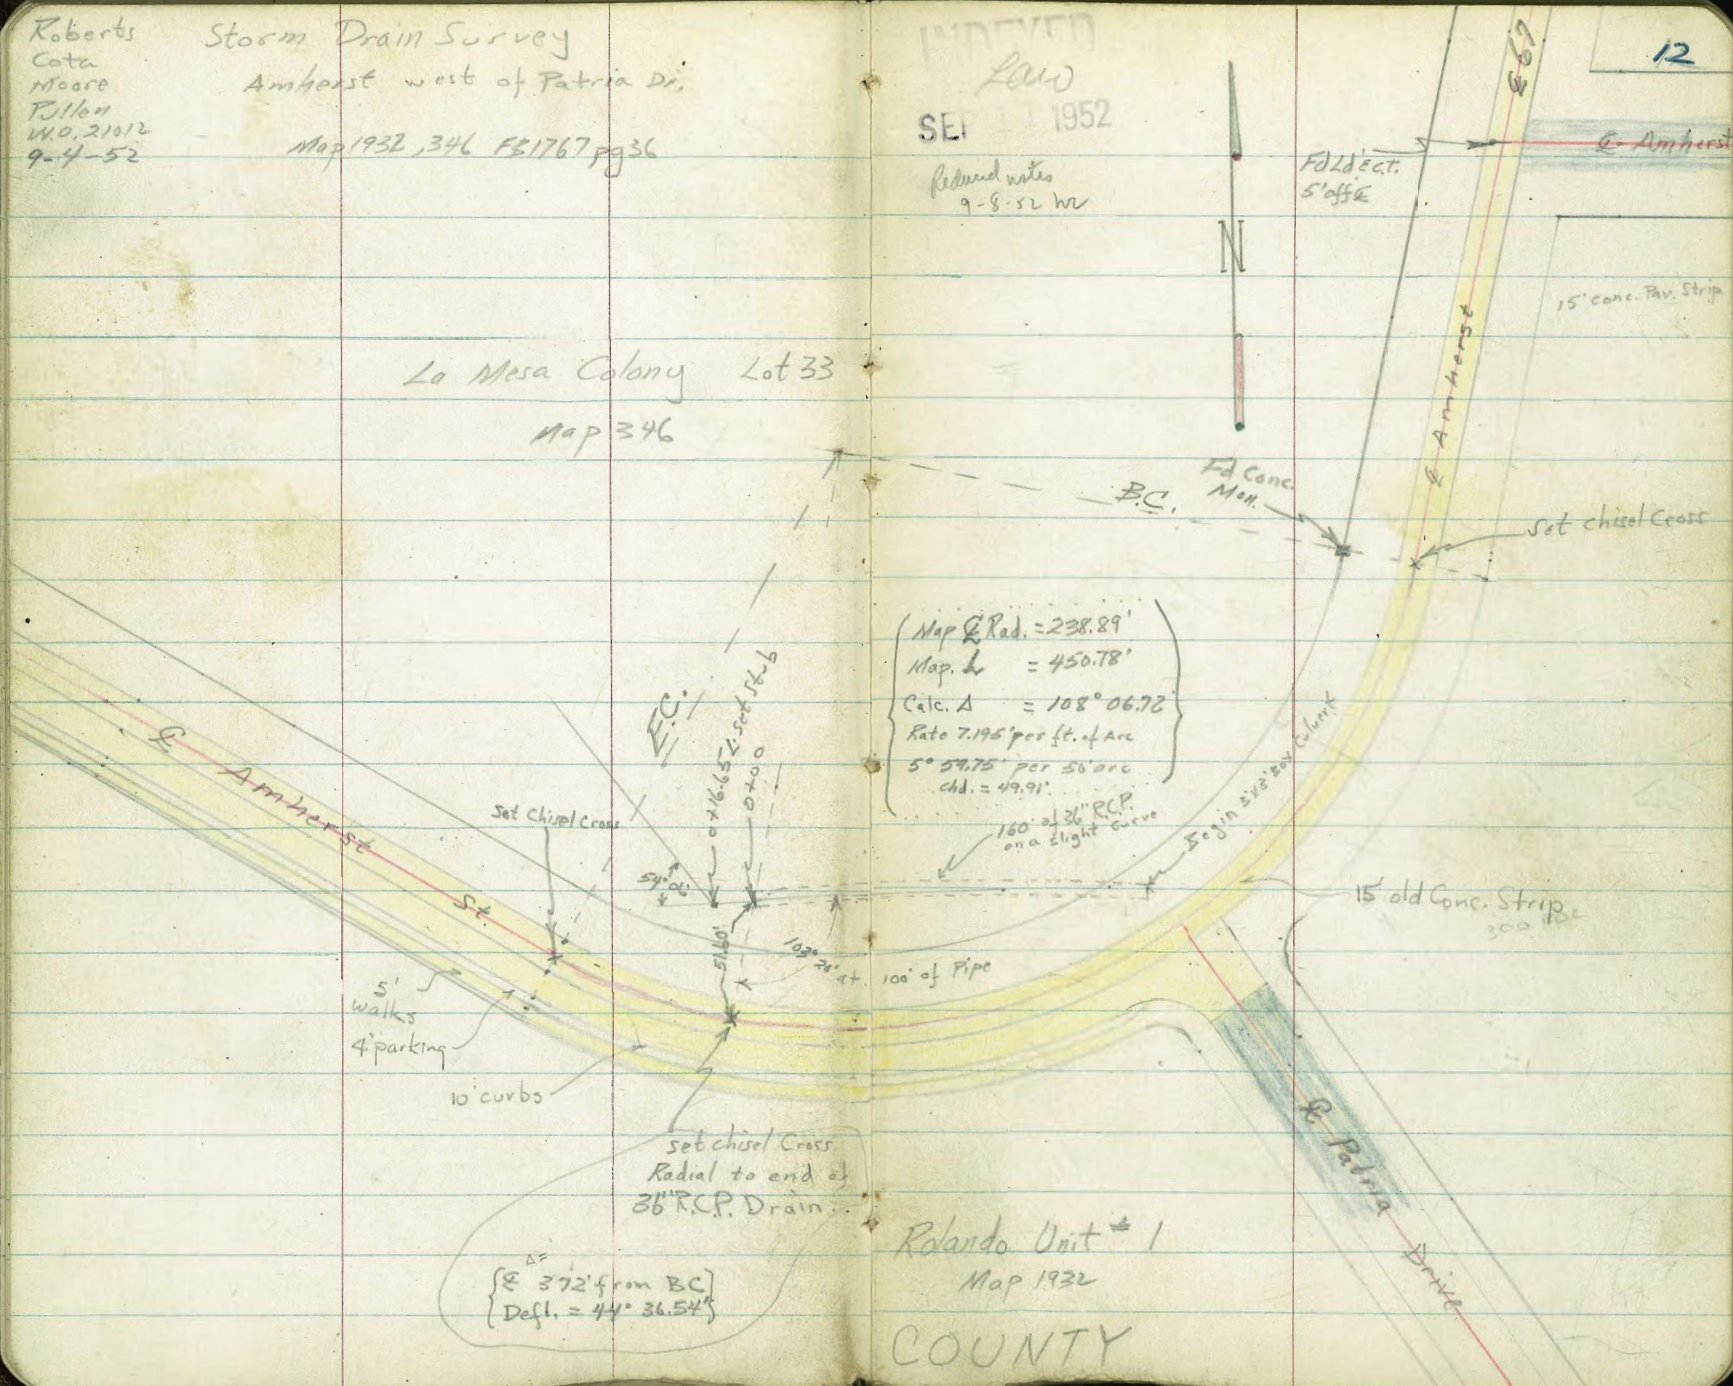 Roberts
Cota
Moore
Pullen
W.O. 21012
9-4-52
Storm Drain Survey
Amherst west of Patria Dr.
Map 1932, 346 FB1767 pg 36
La Mesa Colony Lot 33
Map 346
E.C.
0+16.65 Set Stub
0+00
Set Chisel Cross
54° 06'
51.60'
103° 20' at 100' of Pipe
℄ Amherst St.
5'
walks
4' parking
10' curbs
Set chisel Cross
Radial to end of
36" R.C.P. Drain
Δ=
℄ 372' from BC
Defl. = 44° 36.54'
INDEXED
Law
SEP 11 1952
Reduced notes
9-8-52
N
12
69
℄ Amherst
Fd Ld & c.t.
5' off ℄
15' Conc. Pav. Strip
℄ Amherst
Fd Conc.
Mon.
B.C.
Set Chisel Cross
Map ℄ Rad. = 238.89'
Map. L = 450.78'
Calc. Δ = 108° 06.72
Rate 7.195' per ft. of Arc
5° 59.75' per 50' arc
chd. = 49.91'
160' of 36" R.C.P.
on a slight curve
Begin 3'x3' Box Culvert
15' old Conc. Strip
300
℄ Patria Drive
Rolando Unit # 1
Map 1932
COUNTY